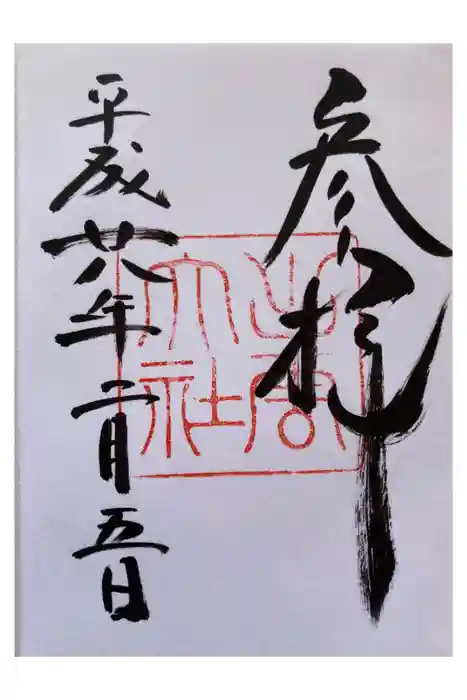 参拝
出雲
大社
平成廿八年二月五日